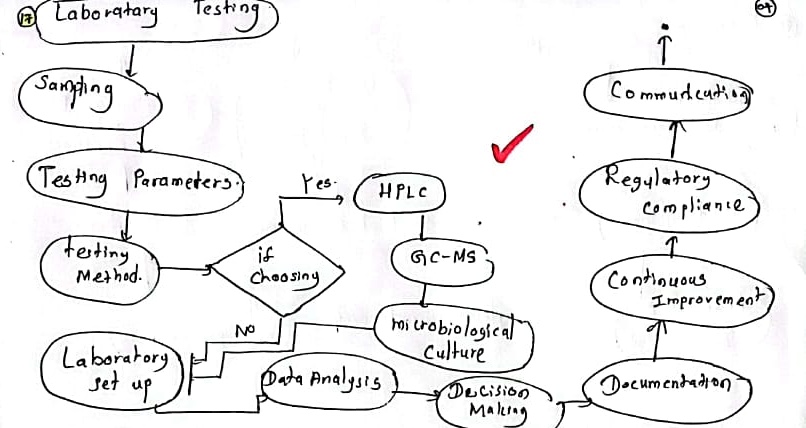 17 Laboratary Testing
04
Sampling
Testing Parameters.
testing
Method.
if
choosing
Yes.
HPLC
GC-MS
microbiological
Culture
No
Laboratory
set up
Data Analysis
Decision
Making
Documentation
Continuous
Improvement
Regulatory
compliance
Communication